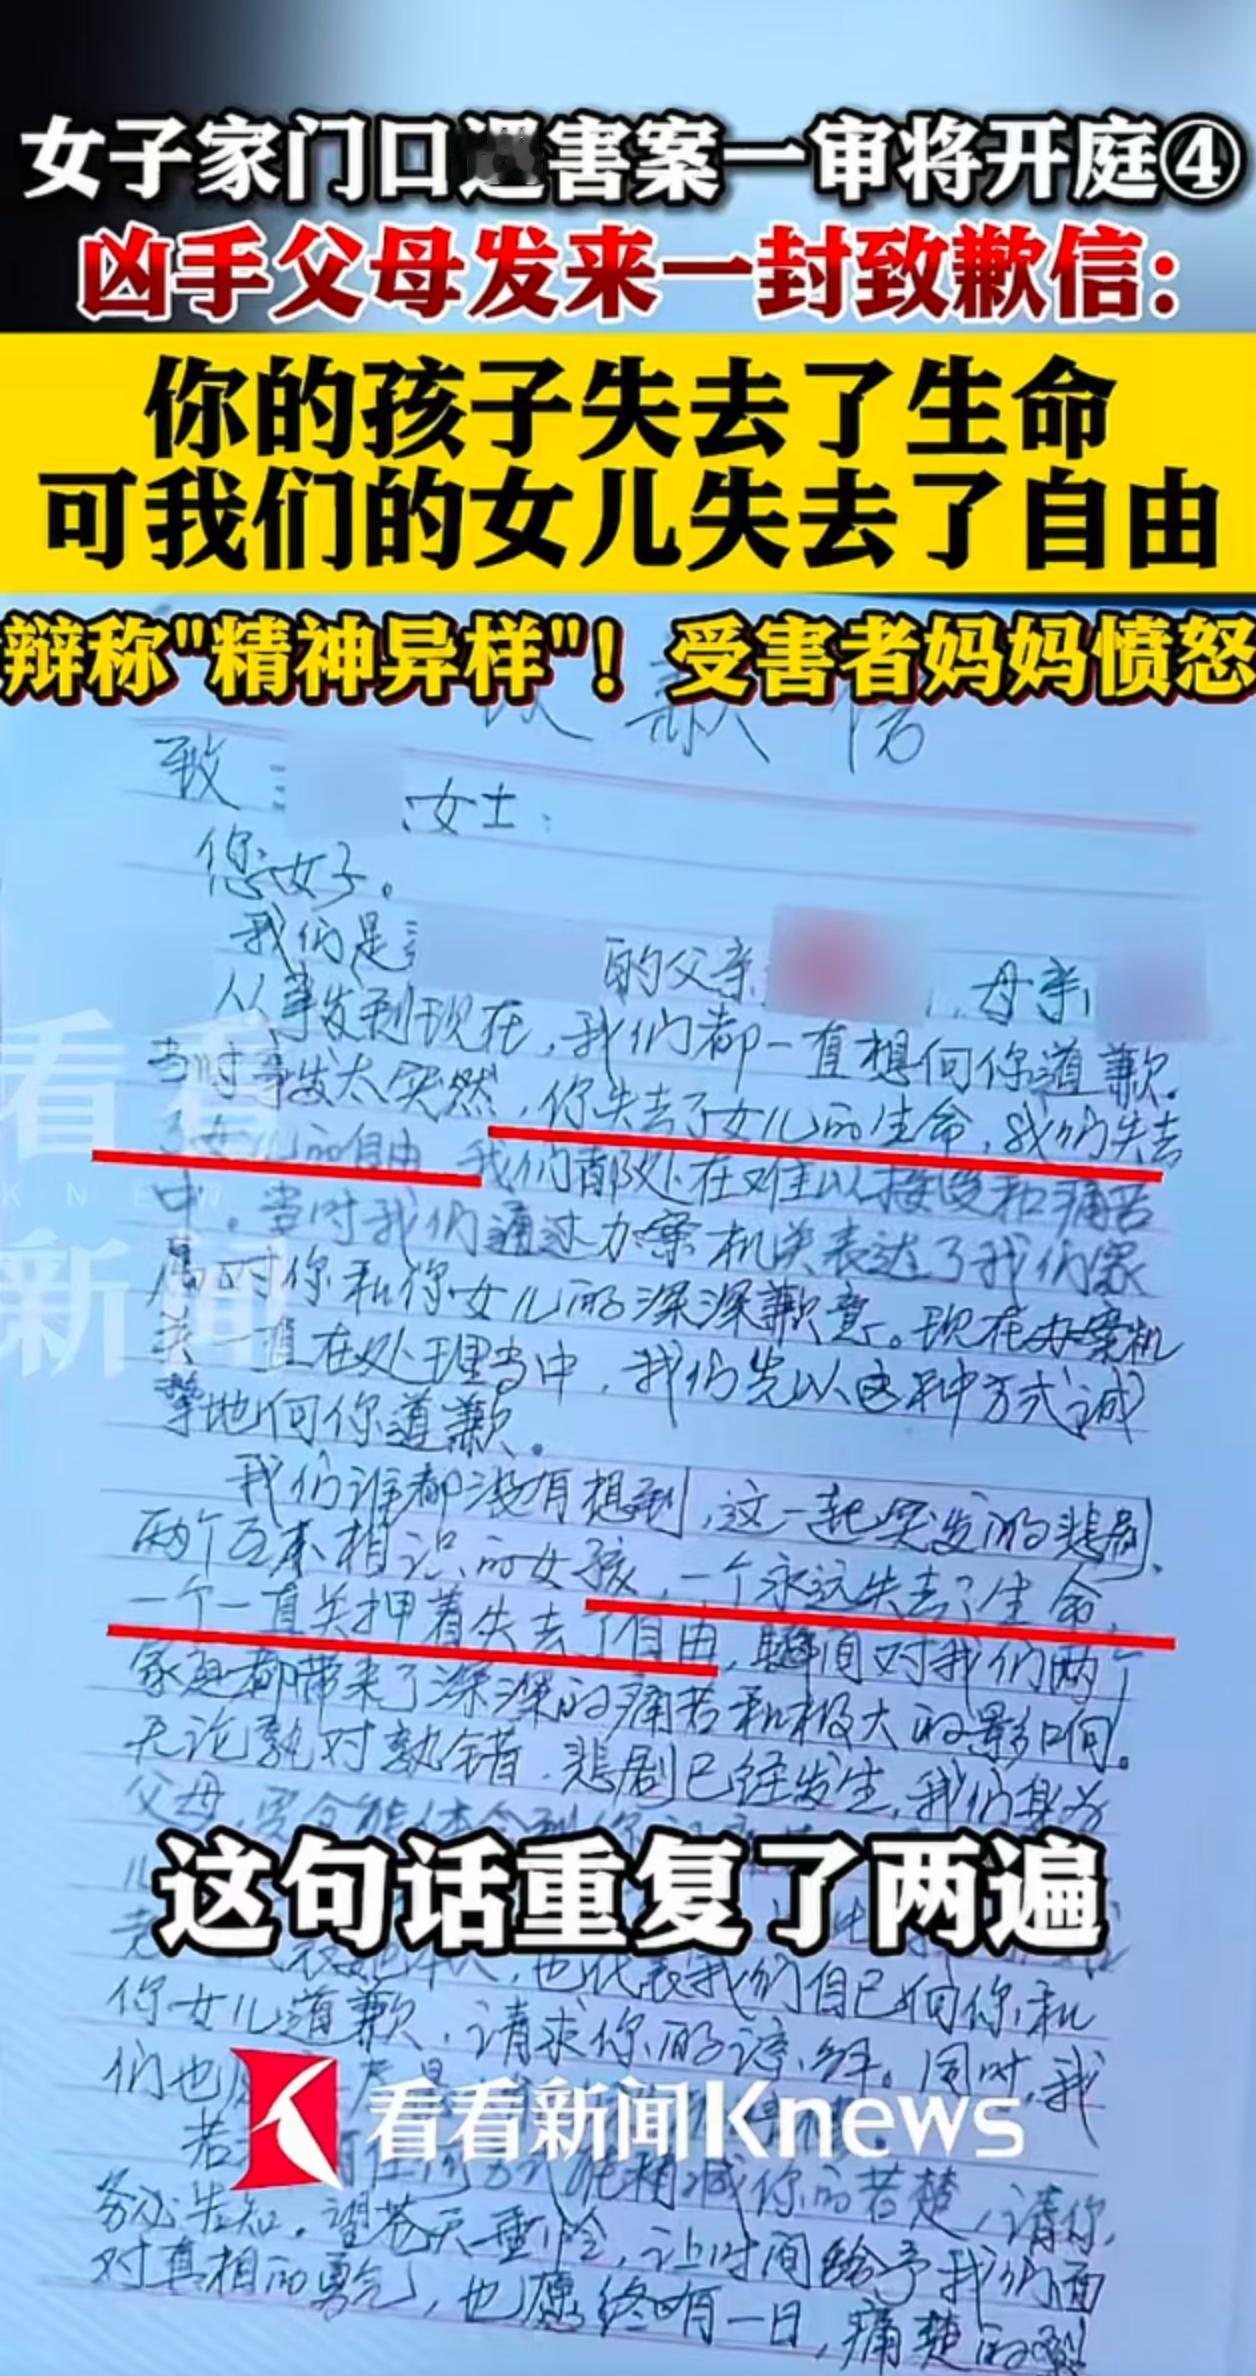 女子家门口遇害案一审将开庭④
凶手父母发来一封致歉信：
你的孩子失去了生命
可我们的女儿失去了自由
辩称"精神异样"！受害者妈妈愤怒
致歉信
致：女士：
您好。
我们是的父亲、母亲
从事发到现在，我们都一直想向你道歉。
当时事发太突然，你失去了女儿的生命，我们失去
了女儿的自由，我们都处在难以接受和痛苦
中。当时我们通过办案机关表达了我们家
属对你和你女儿的深深歉意。现在办案机
关一直在处理当中，我们先以这种方式诚
挚地向你道歉。
我们谁都没有想到，这一起突发的悲剧，
两个互不相识的女孩，一个永远失去了生命，
一个一直关押着失去了自由，瞬间对我们两个
家庭都带来了深深的痛苦和极大的影响。
无论孰对孰错，悲剧已经发生，我们身为
父母，完全能体会到你
这句话重复了两遍
，也代表我们自己向你和
你女儿道歉，请求你的谅解。同时，我
们也
若任何方式能稍减你的苦楚，请你
务必告知。望苍天垂怜，让时间给予我们面
对真相的勇气，也愿终有一日，痛楚的
看看新闻Knews
看看
KNEWS
新闻